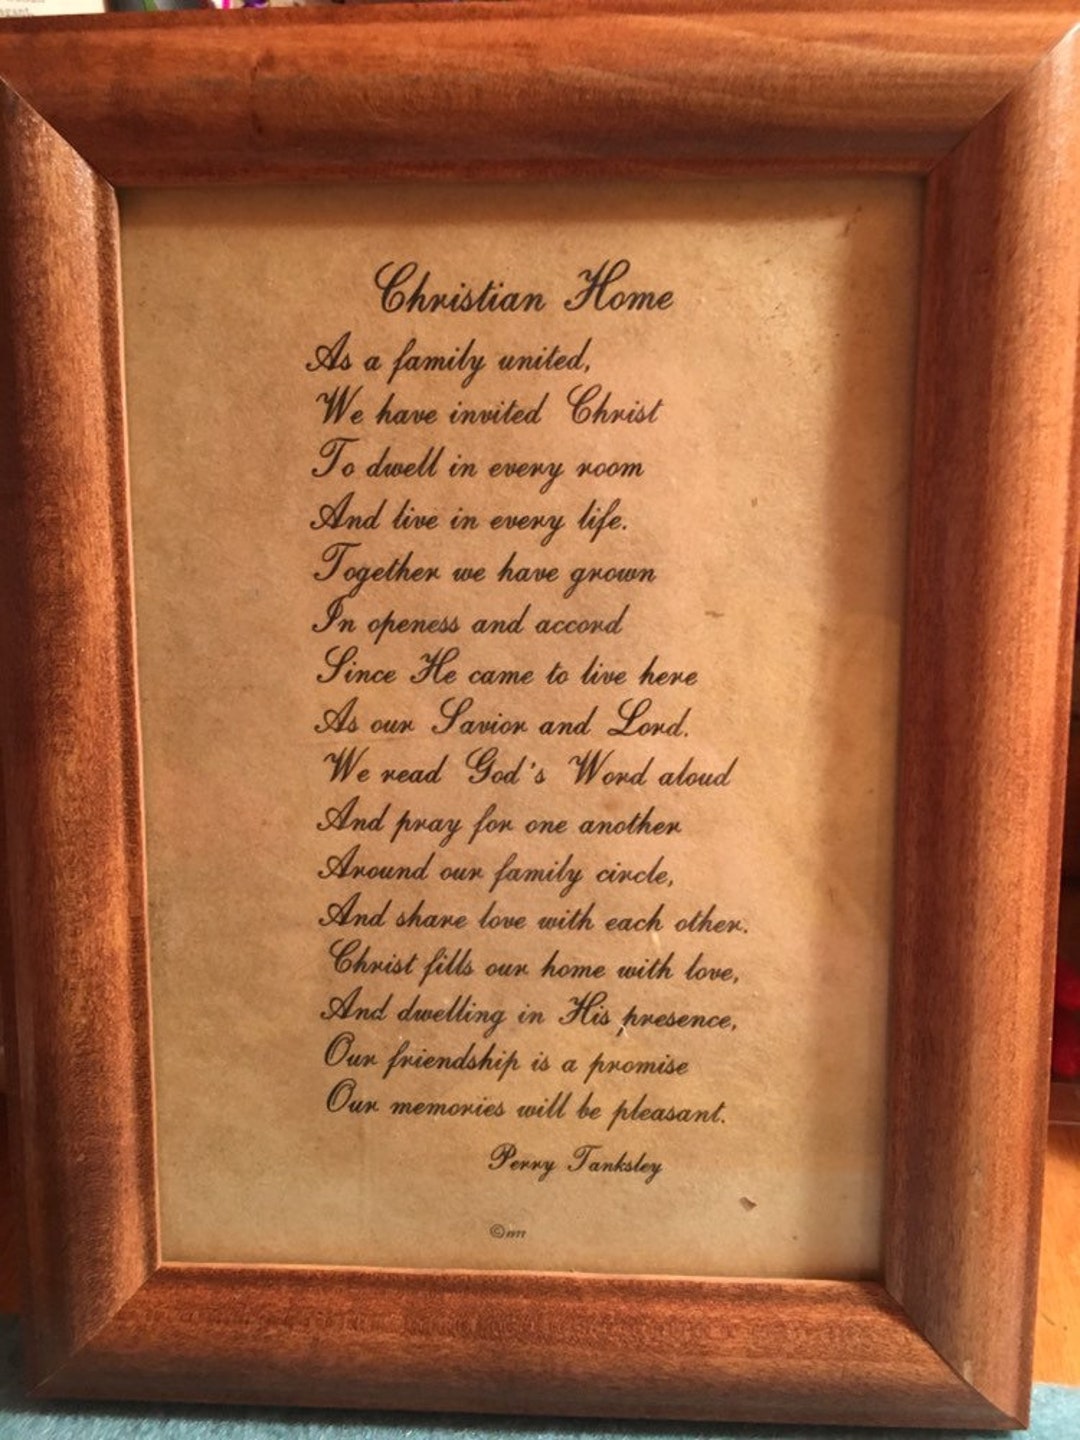 Christian Home
As a family united,
We have invited Christ
To dwell in every room
And live in every life.
Together we have grown
In openess and accord
Since He came to live here
As our Savior and Lord.
We read God's Word aloud
And pray for one another
Around our family circle,
And share love with each other.
Christ fills our home with love,
And dwelling in His presence,
Our friendship is a promise
Our memories will be pleasant.
Perry Tanksley